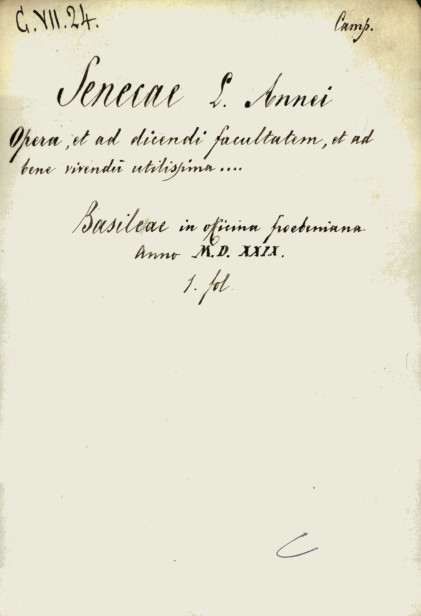 C.VII.24.
Camp.
Senecae L. Annei
Opera, et ad dicendi facultatem, et ad
bene vivendū utilissima ....
Basileae in officina froebeniana
Anno M.D. XXIX.
1. fol.